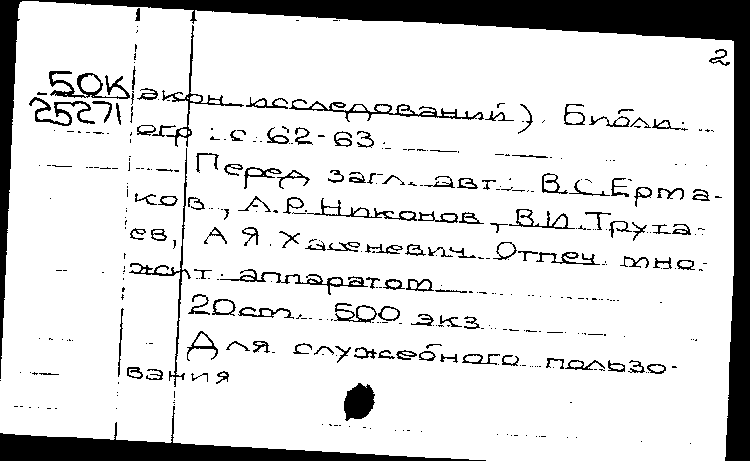 2
50К
25271
экон. исследований). Библи-
огр.: с. 62-63.
Перед загл. авт.: В.С.Ерма-
ков, А.Р.Никонов, В.И.Труха-
ев, А.Я.Хасеневич. Отпеч. мно-
жит. аппаратом
20см. 500 экз
Для служебного пользо-
вания